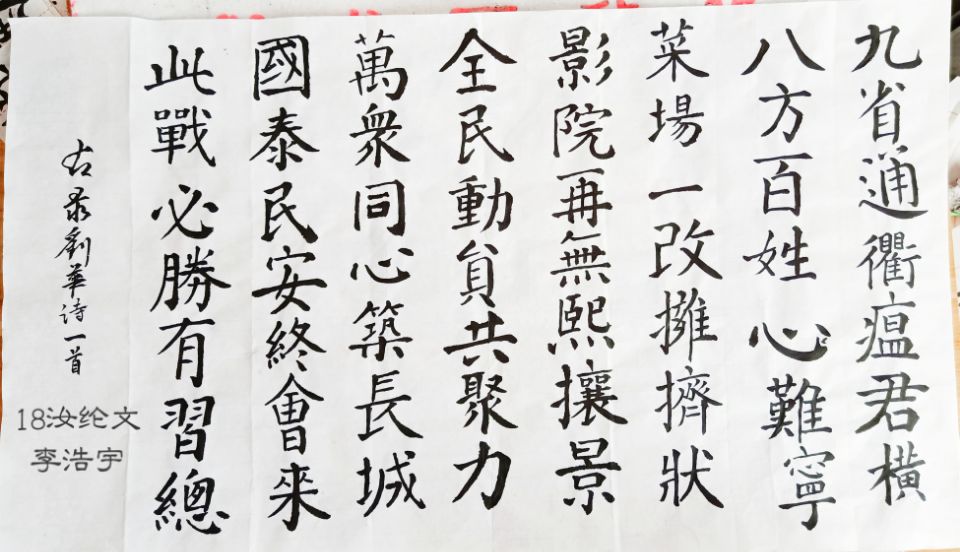 九省通衢瘟君橫
八方百姓心難寧
菜場一改擁擠狀
影院再無熙攘景
全民動員共聚力
萬衆同心築長城
國泰民安終會來
此戰必勝有習總
右录劉華诗一首
18汝纶文
李浩宇